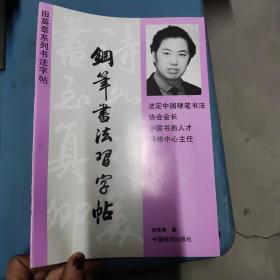 田英章系列书法字帖
鋼筆書法習字帖
法定中国硬笔书法
协会会长
中国书画人才
研修中心主任
田英章 著
中国经济出版社